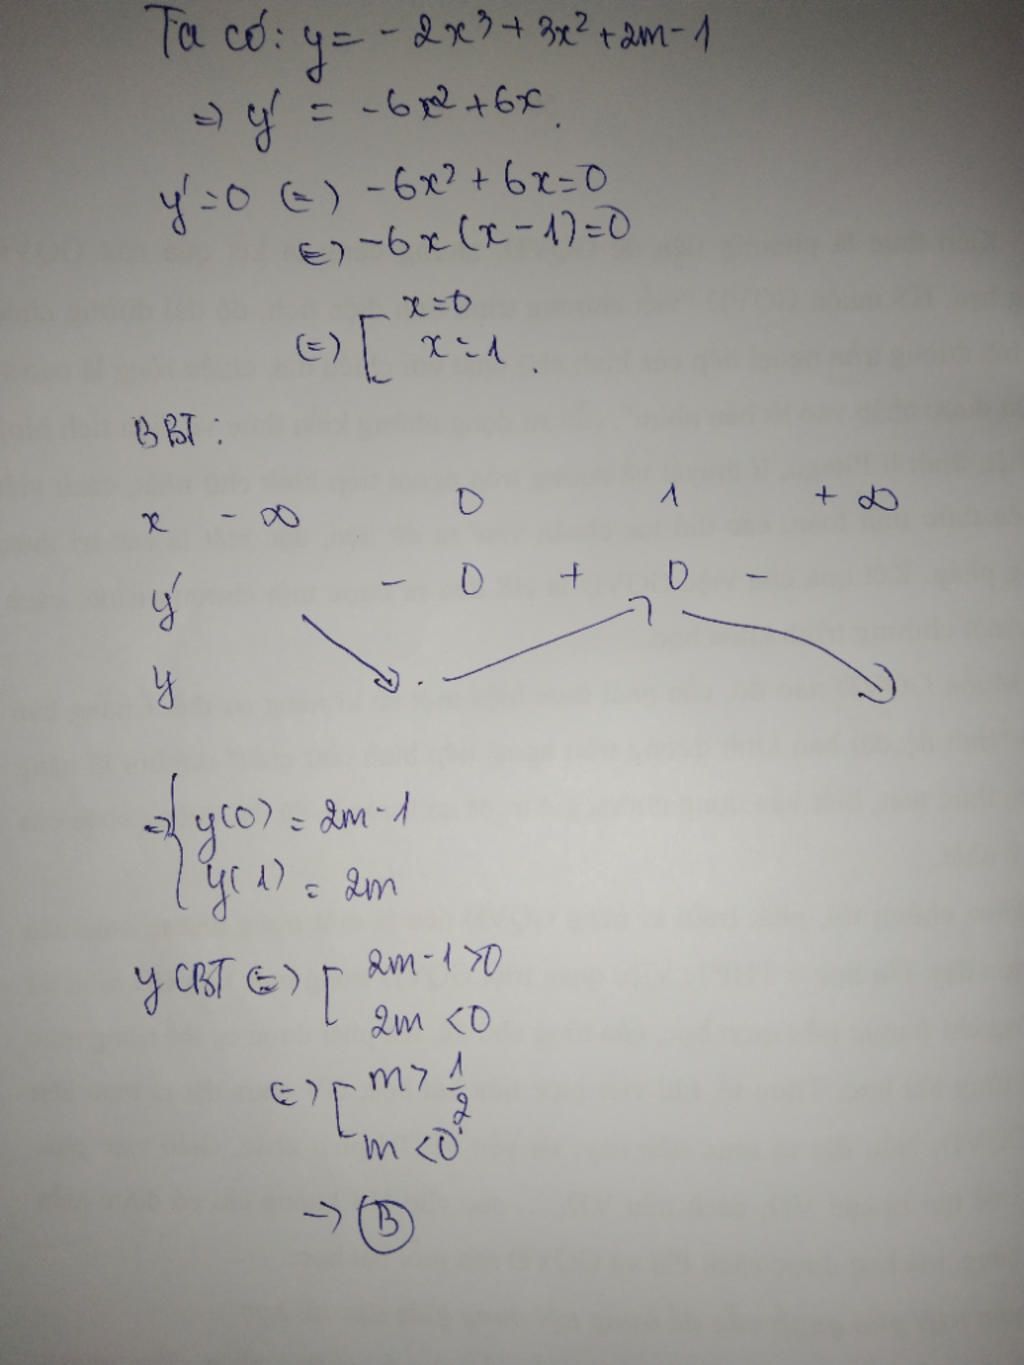 Ta có: y = -2x³ + 3x² + 2m - 1
=> y' = -6x² + 6x.
y' = 0 (=) -6x² + 6x = 0
(=) -6x(x - 1) = 0
(=) [ x = 0
x = 1.
BBT:
x -∞ 0 1 +∞
y' - 0 + 0 -
y
=> { y(0) = 2m - 1
y(1) = 2m
YCBT (=) [ 2m - 1 > 0
2m < 0
(=) [ m > 1/2
m < 0.
-> B